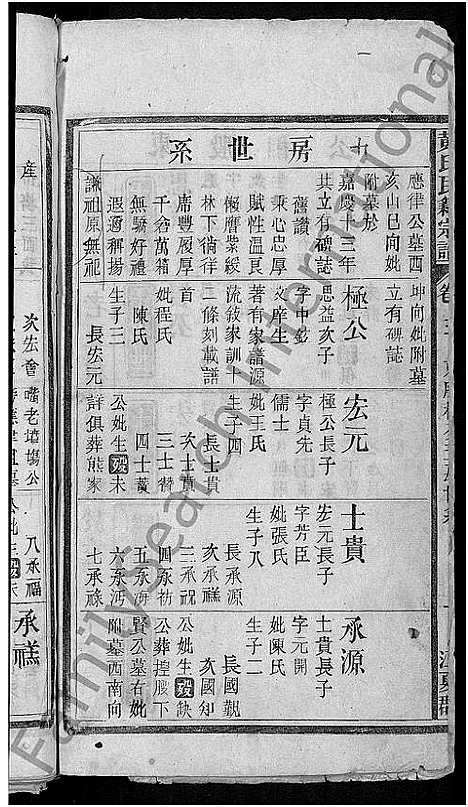 十房世系
應律公墓西
亥山巳向妣
附墓於
嘉慶十三年
共立有碑誌
舊讚
秉心忠厚
賦性溫良
懶膺紫綬
林下徜徉
席豐履厚
千倉萬箱
無驕好禮
遐邇稱揚
謙祖原無祀
坤向妣附墓
立有碑誌
極公
思益次子
字中妙
文庠生
著有家譜源
流敘家訓十
二條刻載譜
首
妣程氏
陳氏
生子三
長宏元
宏元
極公長子
字貞先
儒士
妣王氏
生子四
長士貴
次士蕡
三士贊
四士蕢
公妣生歿未
詳俱葬熊家
士貴
宏元長子
字芳臣
妣張氏
生子八
長承源
次承禚
三承祝
四承祊
五承海
六承沔
七承祿
承源
士貴長子
字元開
妣陳氏
生子二
長國覲
次國知
公妣生歿缺
公葬控腰下
賢公墓右妣
附墓西南向
次宏會
嘴老墳塲公
八承福
承禚
黃氏宗譜
卷
江夏郡
FamilySearch International